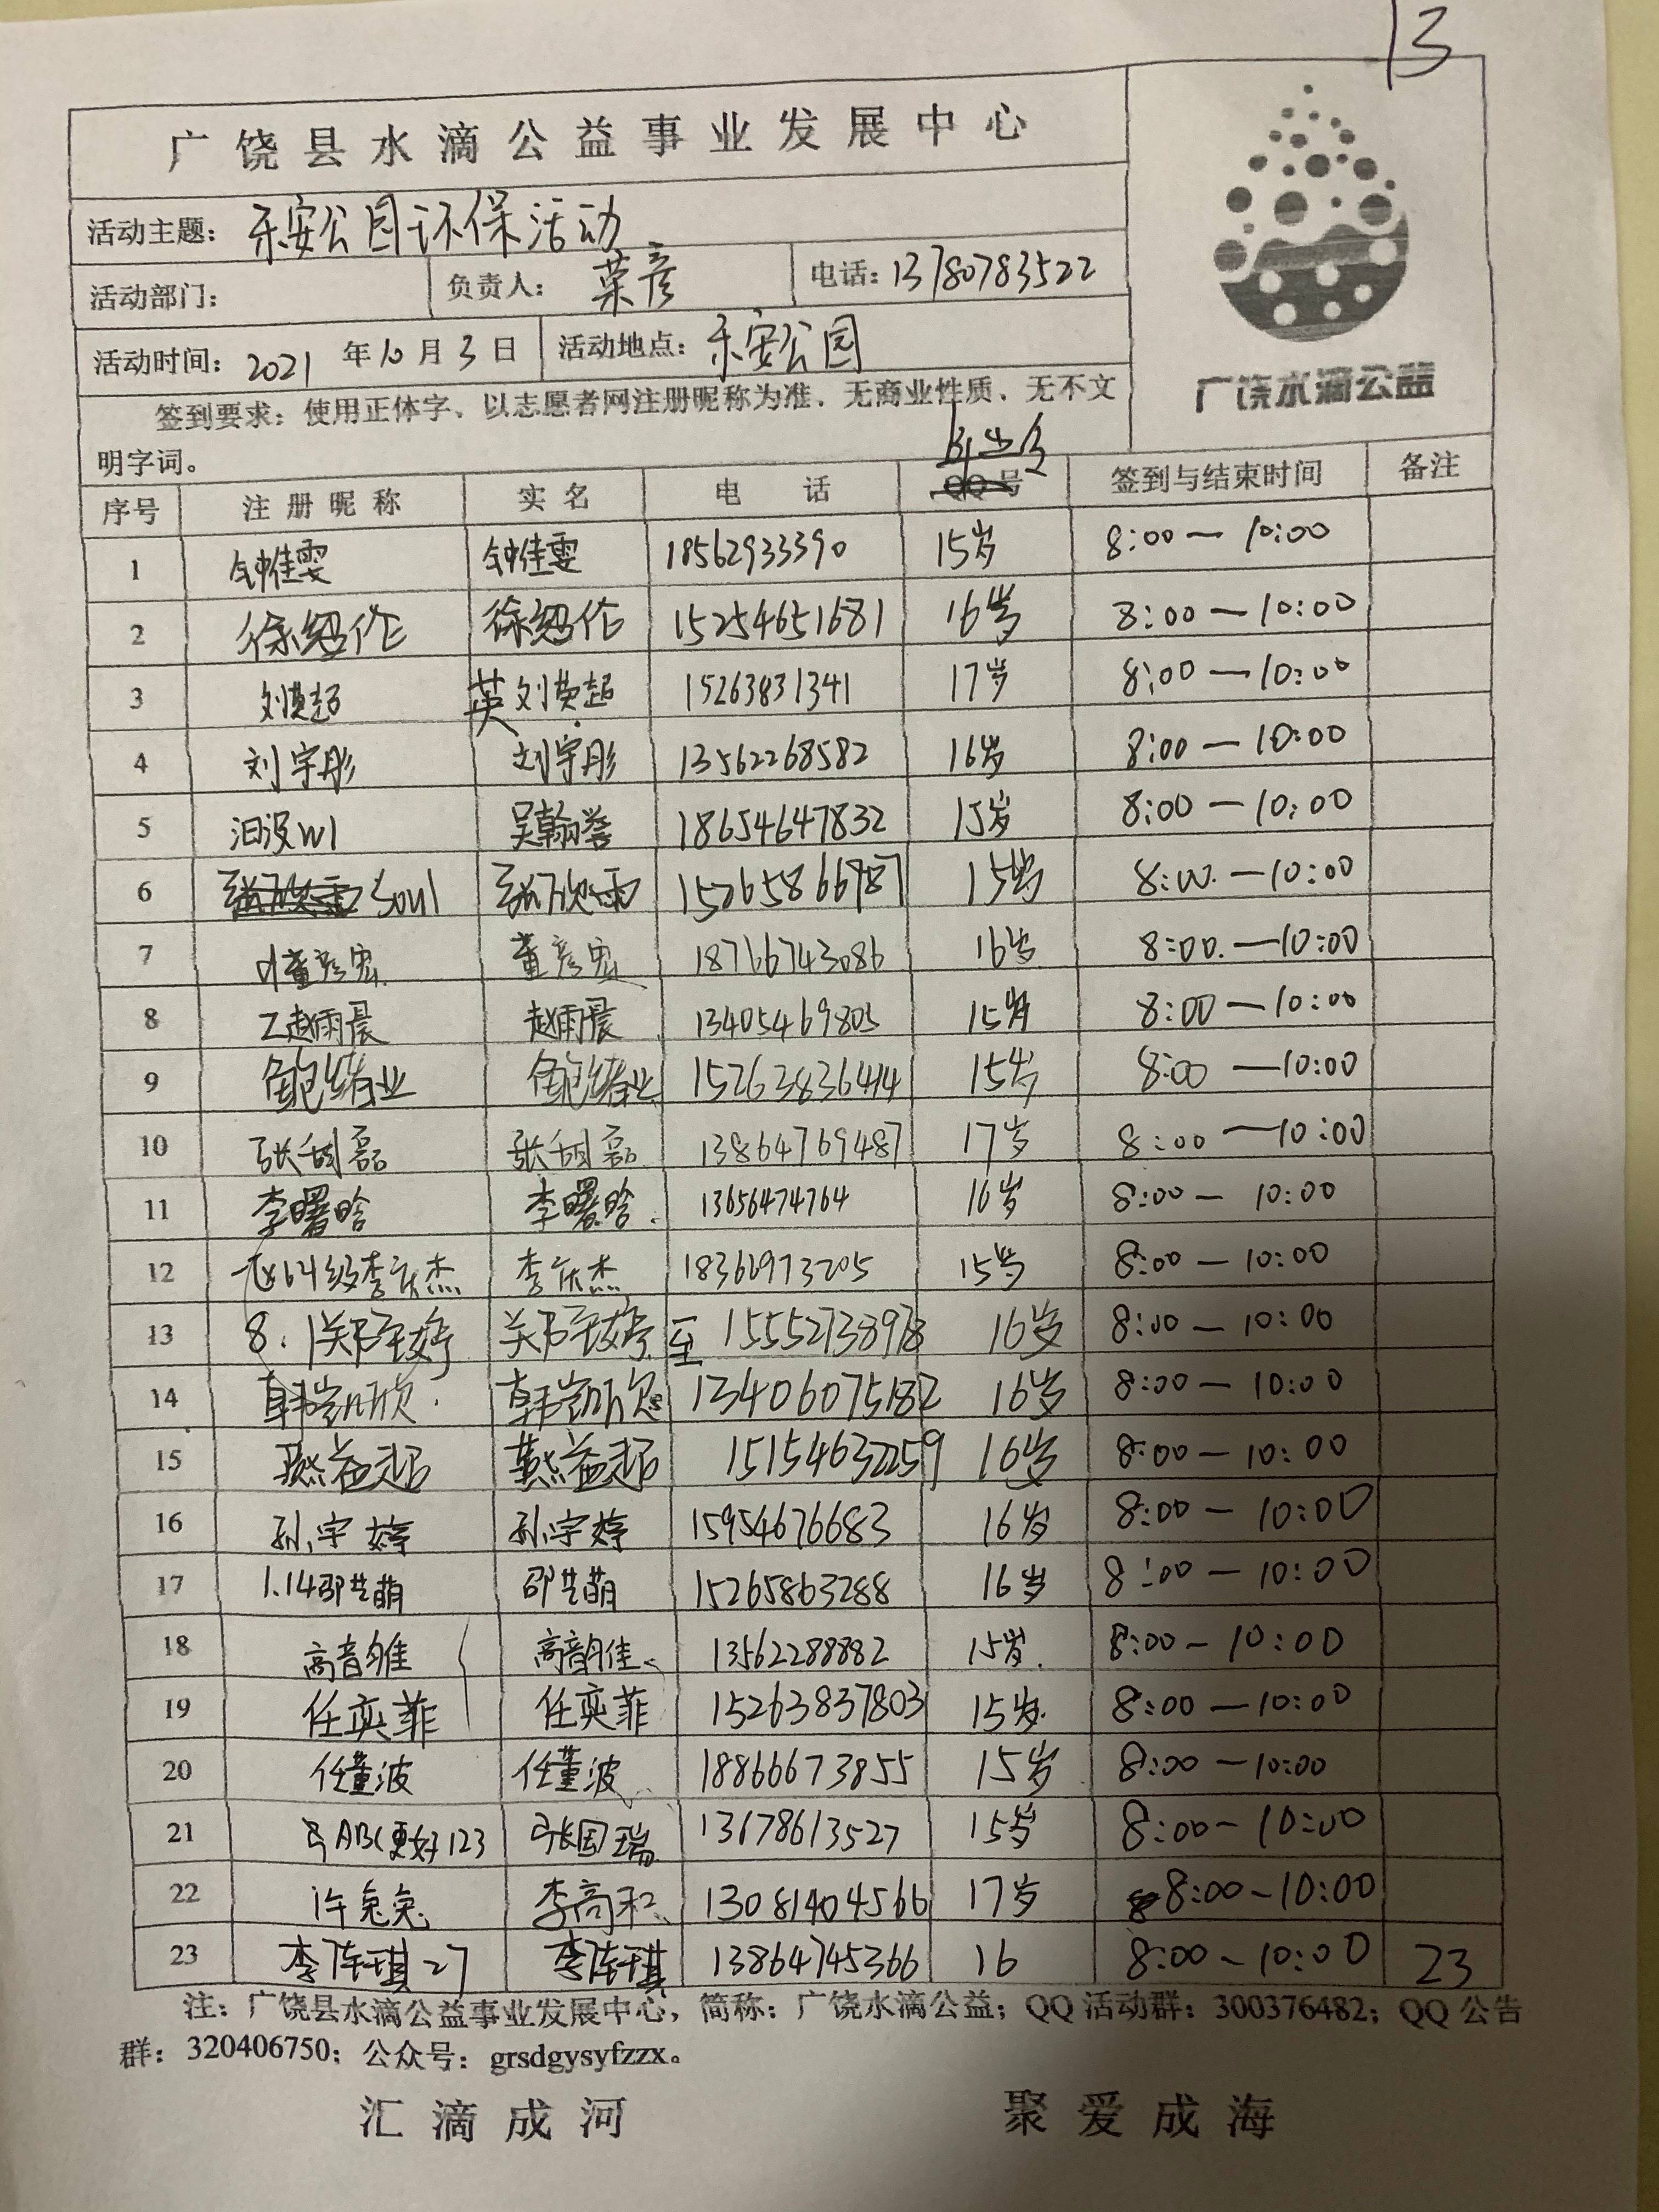 13
广饶县水滴公益事业发展中心
活动主题：乐安公园环保活动
活动部门： 负责人：荣彦 电话：13780783522
活动时间：2021年10月3日 活动地点：乐安公园
广饶水滴公益
签到要求：使用正体字、以志愿者网注册昵称为准、无商业性质、无不文
明字词。
序号 注册昵称 实名 电话 QQ号 签到与结束时间 备注
1 钟佳雯 钟佳雯 18562933390 15岁 8:00—10:00
2 徐绍伦 徐绍伦 15254651681 16岁 8:00—10:00
3 刘英超 英刘英超 15263831341 17岁 8:00—10:00
4 刘宇彤 刘宇彤 13562268582 16岁 8:00—10:00
5 汩没W1 吴翰誉 18654647832 15岁 8:00—10:00
6 Soul 张欣雨 15265866987 15岁 8:00.—10:00
7 d董彦宏 董彦宏 18766743086 16岁 8:00.—10:00
8 Z赵雨晨 赵雨晨 13405469805 15岁 8:00—10:00
9 15263836414 15岁 8:00—10:00
10 13864769487 17岁 8:00—10:00
11 李曙晗 李曙晗 13656474764 16岁 8:00—10:00
12 飞64级李庆杰 李庆杰 18366973205 15岁 8:00—10:00
13 8.1郑至婷 郑至婷 至 15552738978 16岁 8:00—10:00
14 韩凯欣 韩凯欣 13406075182 16岁 8:00—10:00
15 燕益起 燕益起 15154632259 16岁 8:00—10:00
16 孙宇婷 孙宇婷 15954676683 16岁 8:00—10:00
17 1.14邵艺萌 邵艺萌 15265863288 16岁 8:00—10:00
18 高韵佳 高韵佳 13562288882 15岁 8:00—10:00
19 任奕菲 任奕菲 15263837803 15岁 8:00—10:00
20 任董波 任董波 18866673855 15岁 8:00—10:00
21 ABC更好123 张国瑞 13678613527 15岁 8:00—10:00
22 许兔兔 李高和 13081404566 17岁 8:00—10:00
23 李陈琪27 李陈琪 13864745366 16 8:00—10:00 23
注：广饶县水滴公益事业发展中心，简称：广饶水滴公益；QQ活动群：300376482；QQ公告
群：320406750；公众号：grsdgysyfzzx。
汇滴成河 聚爱成海